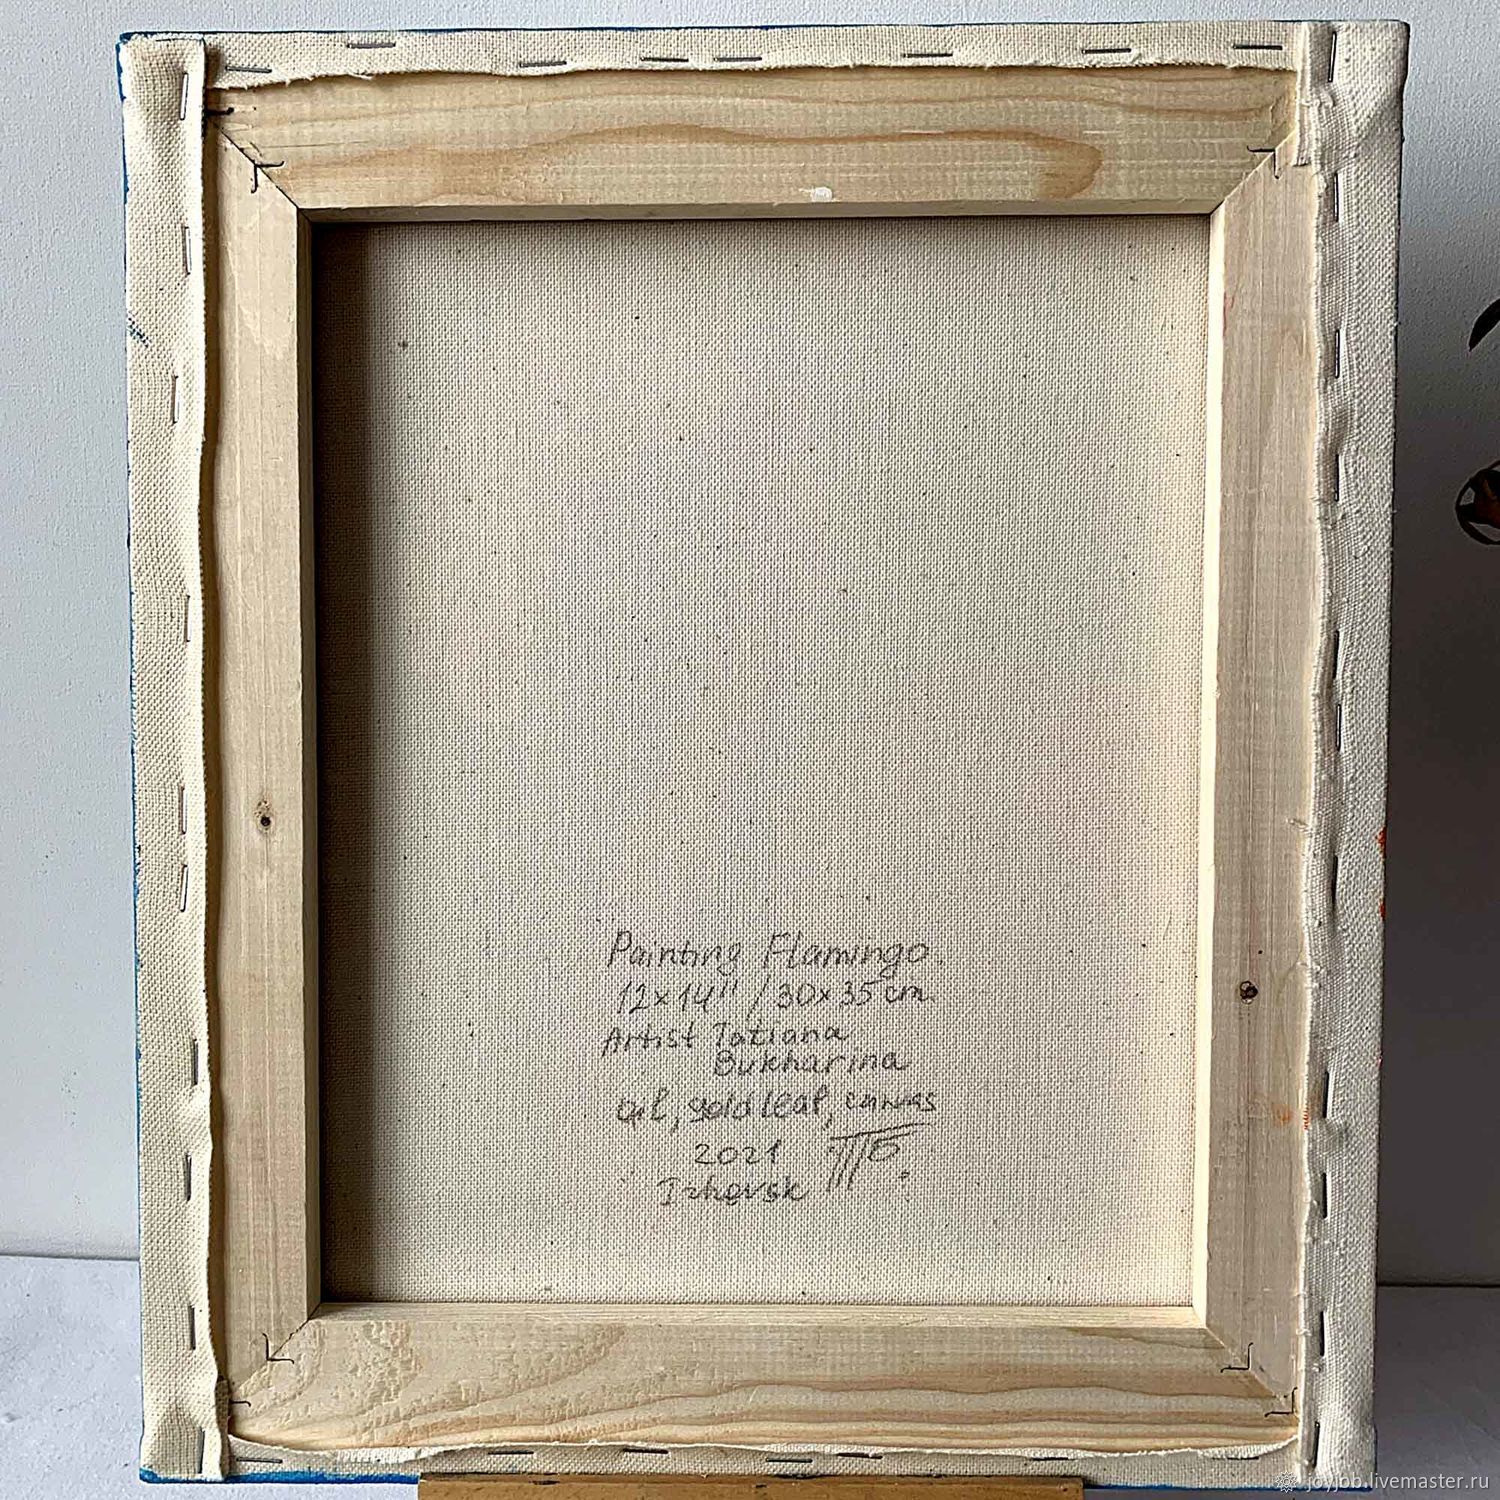 Painting Flamingo.
12x14" / 30x35 cm.
Artist Tatiana
Bukharina
oil, gold leaf, canvas
2021 ТБ.
Izhevsk
joyjob.livemaster.ru